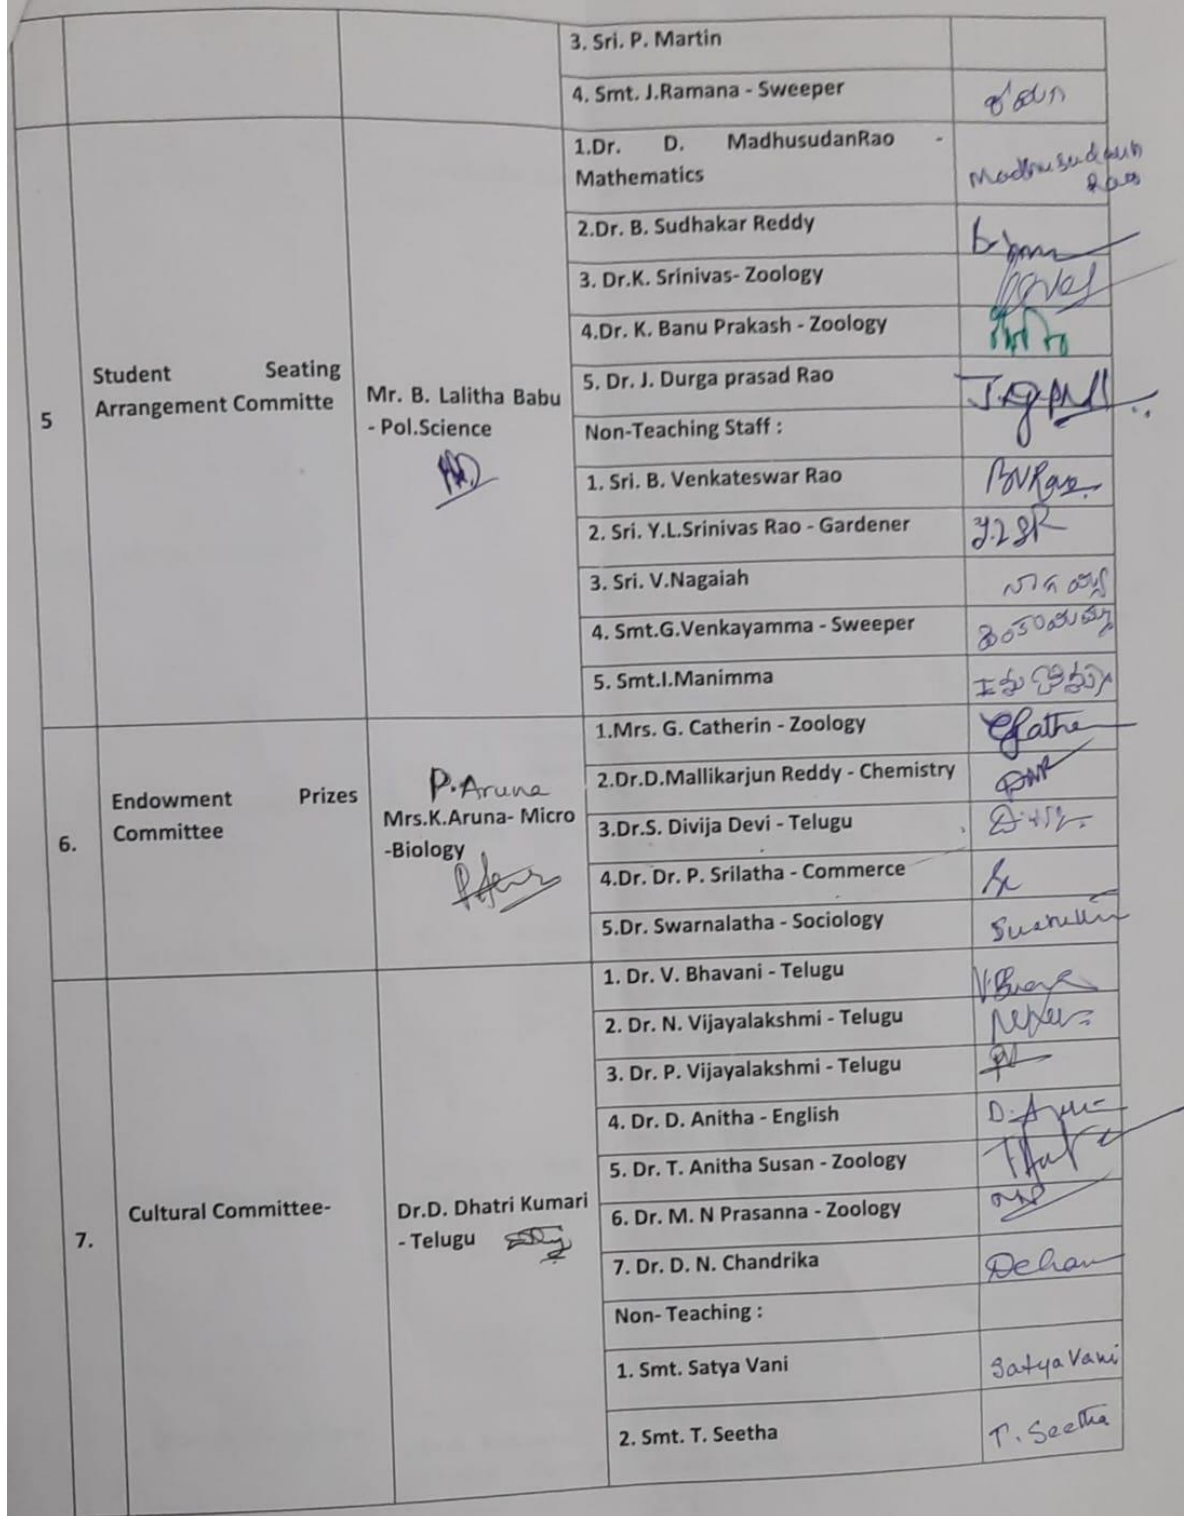 3. Sri. P. Martin
4. Smt. J.Ramana - Sweeper
5
Student Seating
Arrangement Committe
Mr. B. Lalitha Babu
- Pol.Science
1.Dr. D. MadhusudanRao -
Mathematics
Madhusudan
Rao
2.Dr. B. Sudhakar Reddy
3. Dr.K. Srinivas- Zoology
4.Dr. K. Banu Prakash - Zoology
5. Dr. J. Durga prasad Rao
Non-Teaching Staff :
1. Sri. B. Venkateswar Rao
BVRao
2. Sri. Y.L.Srinivas Rao - Gardener
3. Sri. V.Nagaiah
4. Smt.G.Venkayamma - Sweeper
5. Smt.I.Manimma
6.
Endowment Prizes
Committee
P.Aruna
Mrs.K.Aruna- Micro
-Biology
1.Mrs. G. Catherin - Zoology
2.Dr.D.Mallikarjun Reddy - Chemistry
3.Dr.S. Divija Devi - Telugu
4.Dr. Dr. P. Srilatha - Commerce
5.Dr. Swarnalatha - Sociology
7.
Cultural Committee-
Dr.D. Dhatri Kumari
- Telugu
1. Dr. V. Bhavani - Telugu
2. Dr. N. Vijayalakshmi - Telugu
3. Dr. P. Vijayalakshmi - Telugu
4. Dr. D. Anitha - English
5. Dr. T. Anitha Susan - Zoology
6. Dr. M. N Prasanna - Zoology
7. Dr. D. N. Chandrika
Non- Teaching :
1. Smt. Satya Vani
Satya Vani
2. Smt. T. Seetha
T. Seetha